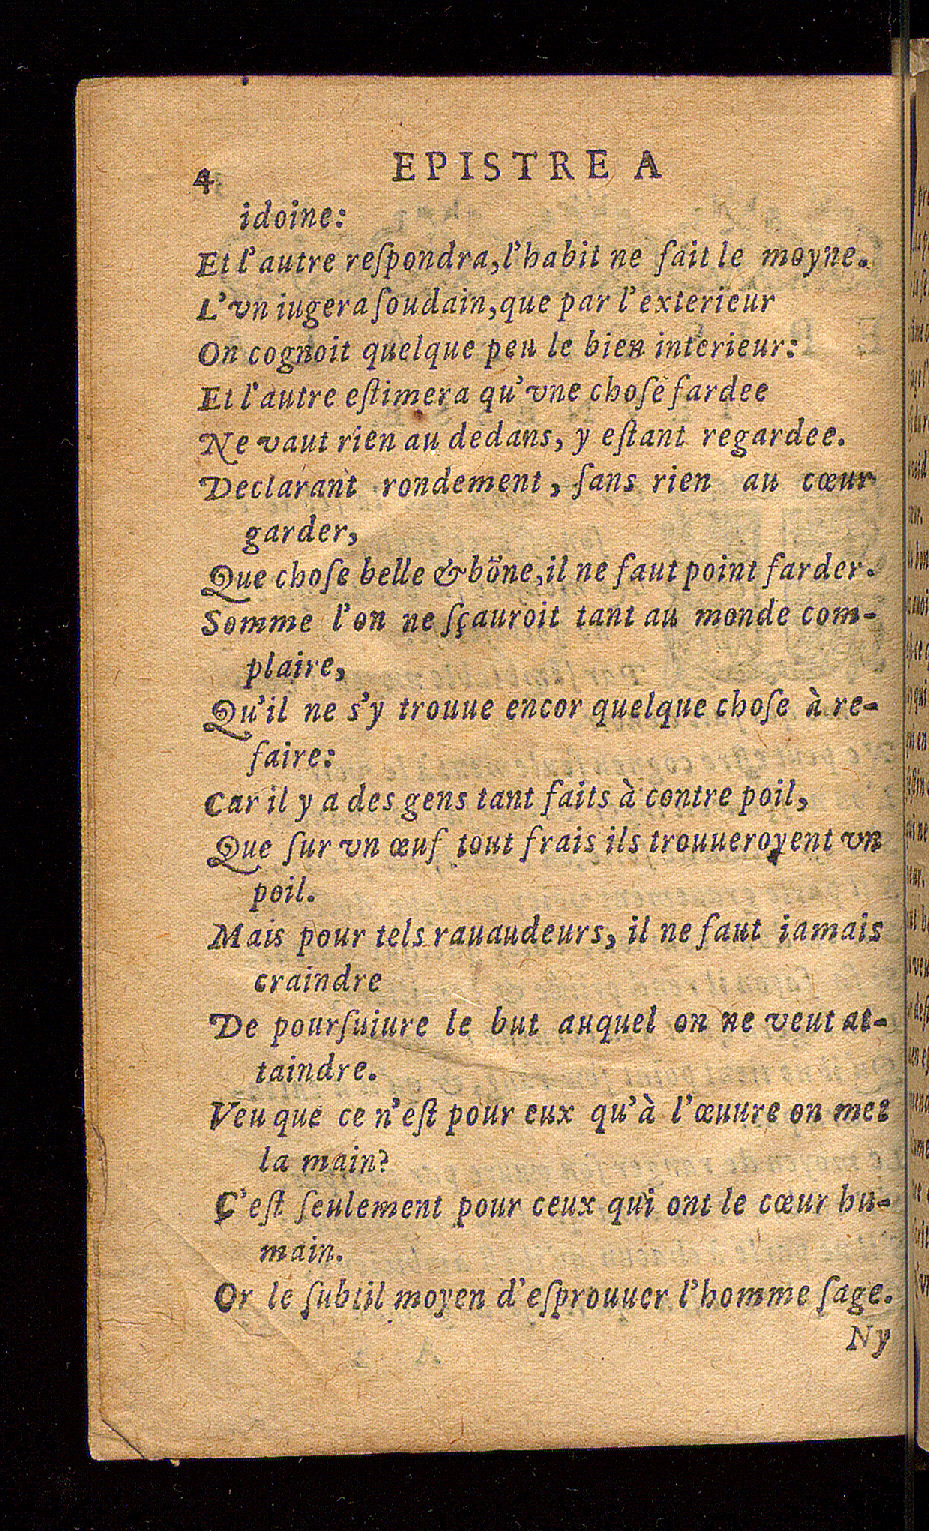 4 EPISTRE A
idoine:
Et l'autre reſpondra, l'habit ne fait le moyne.
L'vn iugera ſoudain, que par l'exterieur
On cognoit quelque peu le bien interieur:
Et l'autre eſtimera qu'vne choſe fardee
Ne vaut rien au dedans, y eſtant regardee.
Declarant rondement, ſans rien au cœur
garder,
Que choſe belle & bõne, il ne faut point farder.
Somme l'on ne ſçauroit tant au monde com-
plaire,
Qu'il ne s'y trouue encor quelque choſe à re-
faire:
Car il y a des gens tant faits à contre poil,
Que ſur vn œuf tout frais ils trouueroyent vn
poil.
Mais pour tels rauaudeurs, il ne faut iamais
craindre
De pourſuiure le but auquel on ne veut at-
taindre.
Veu que ce n'eſt pour eux qu'à l'œuure on met
la main?
C'eſt ſeulement pour ceux qui ont le cœur hu-
main.
Or le ſubtil moyen d'eſprouuer l'homme ſage.
Ny